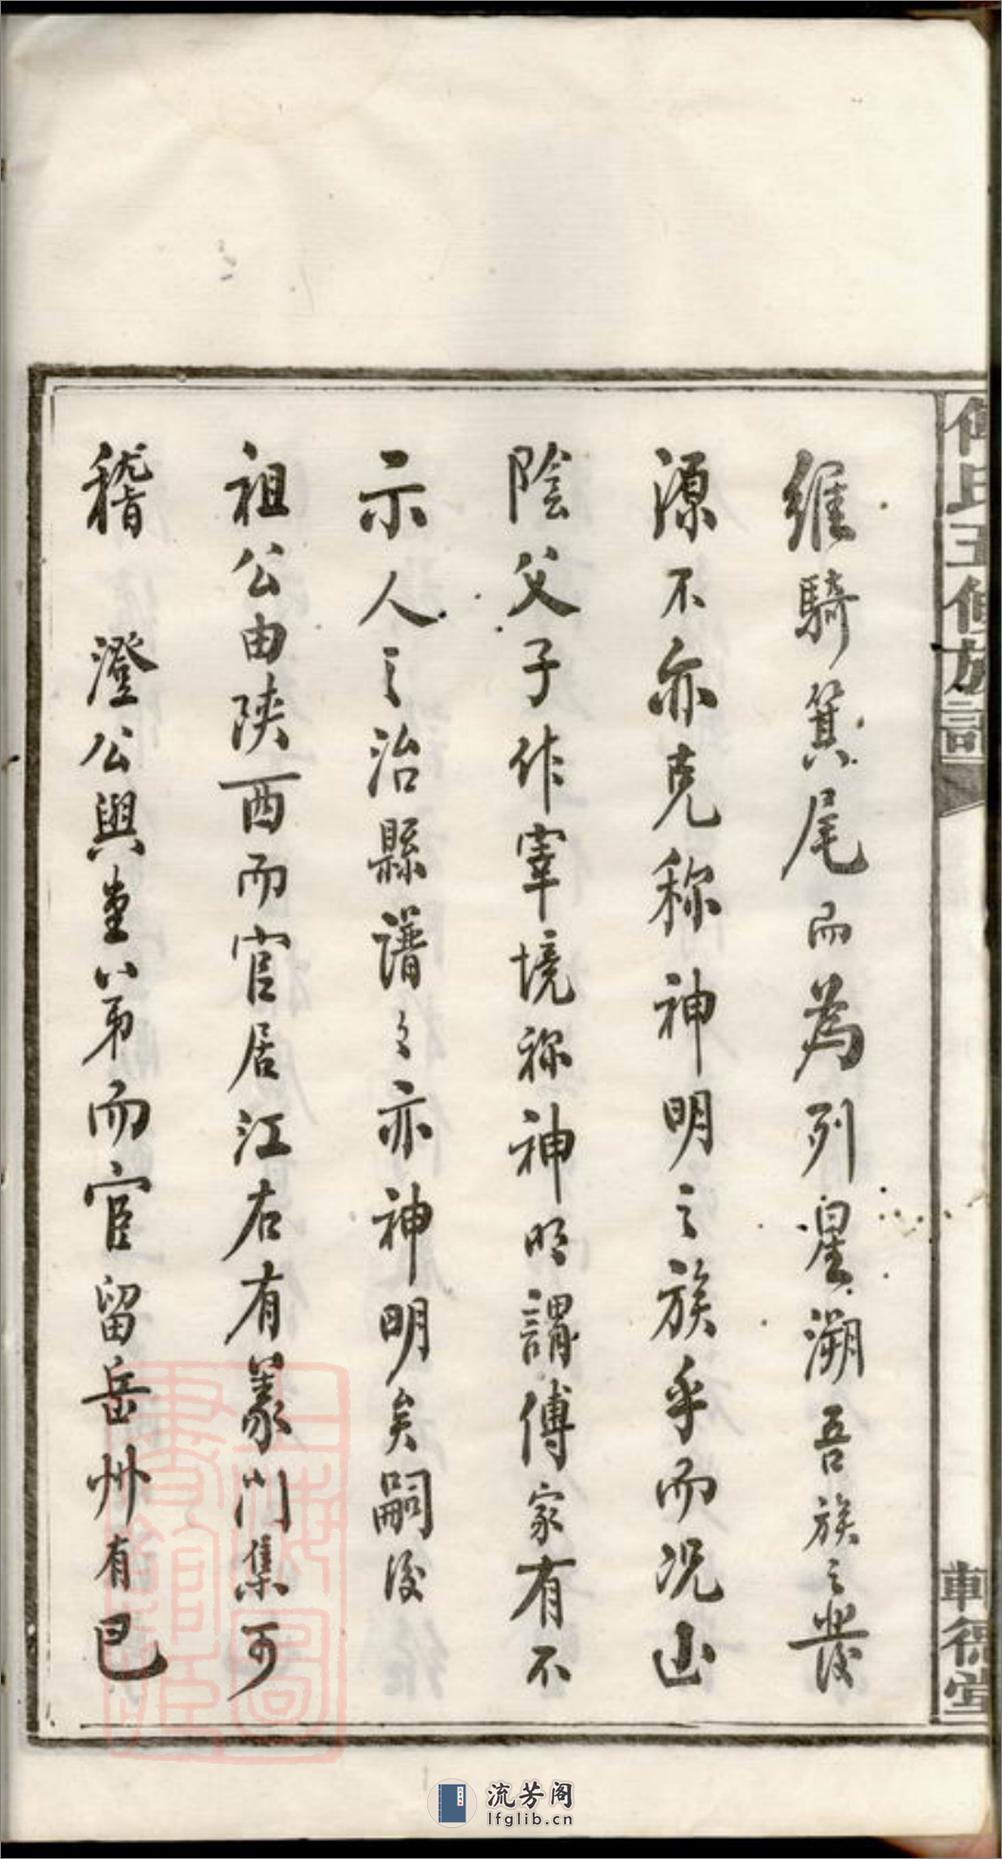 傅氏五修族譜
維騎箕尾而為列星溯吾族之發
源不亦克称神明之族乎而況山
陰父子作宰境称神明謂傅家有不
示人之治縣譜々亦神明矣嗣後
祖公由陝西而官居江右有篆川集可
稽 澄公與堂八弟而官留岳州有巴
流芳阁
lfglib.cn